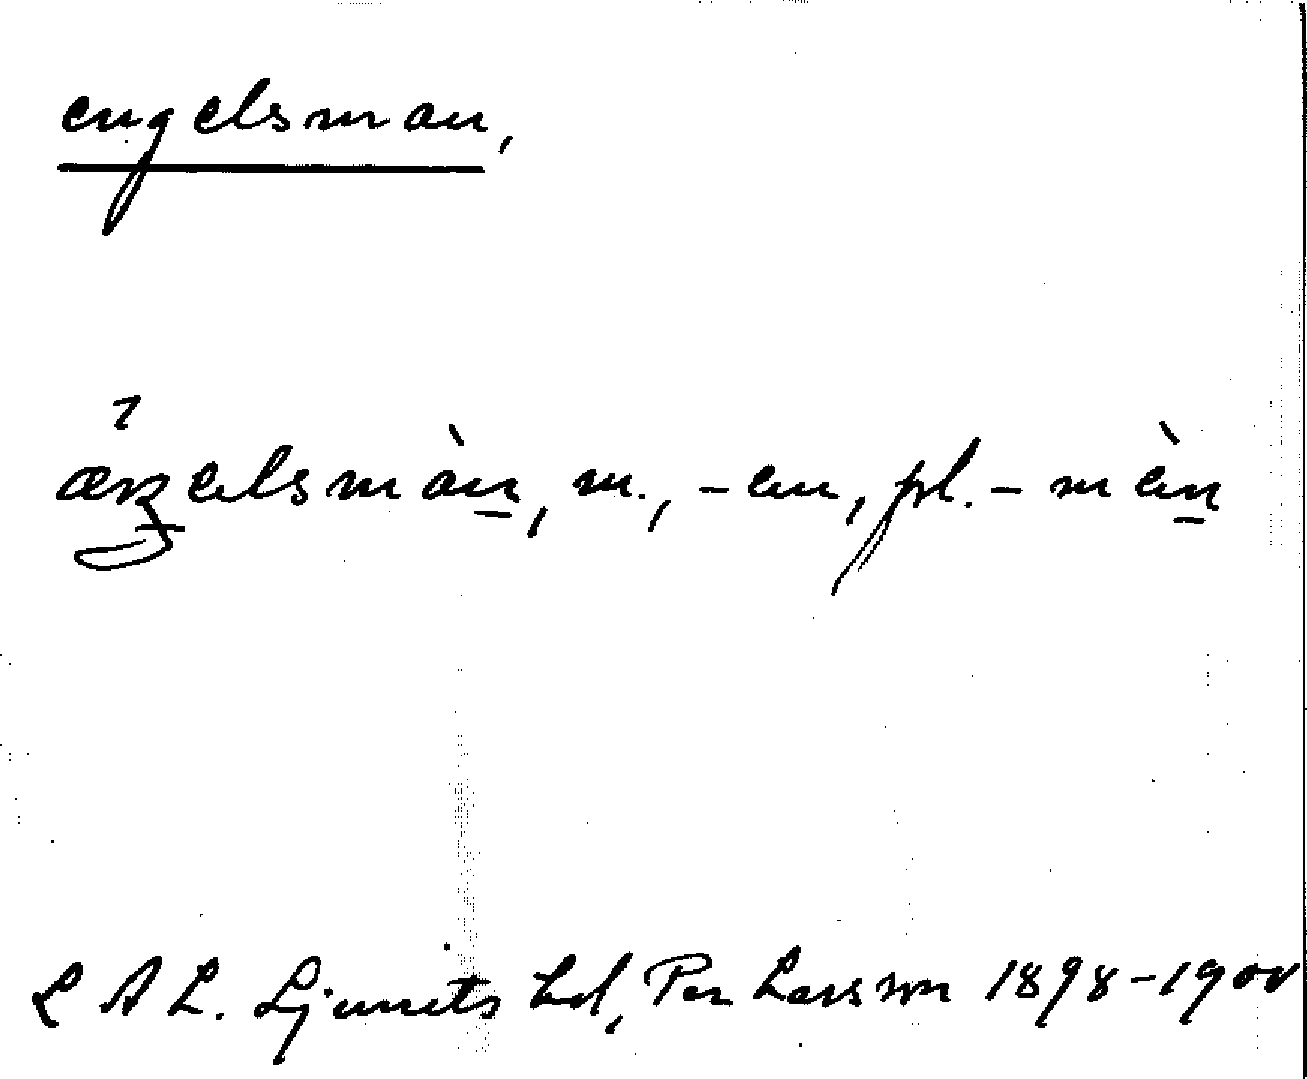 engelsman,
æŋelsmàn, m., -en, pl. -mèn
L A L. Ljunits hd, Per Larsson 1898-1900